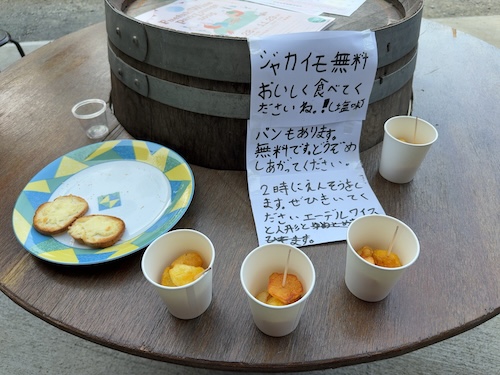 ジャカイモ無料
おいしく食べてく
ださいね。!
パンもあります。
無料です。どうぞめ
しあがってください。
2時にえんそうをし
ます。ぜひきいてく
ださい エーデルワイス
と人形と
ひきます。